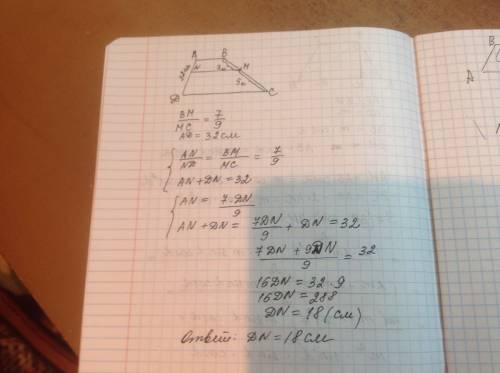 A B
N
M
D C
BM/MC = 7/9
AD = 32 см
AN/ND = BM/MC = 7/9
AN + DN = 32
AN = 7·DN/9
AN + DN = 7DN/9 + DN = 32
7DN + 9DN/9 = 32
16DN = 32·9
16DN = 288
DN = 18 (см)
Ответ: DN = 18 см
B
A